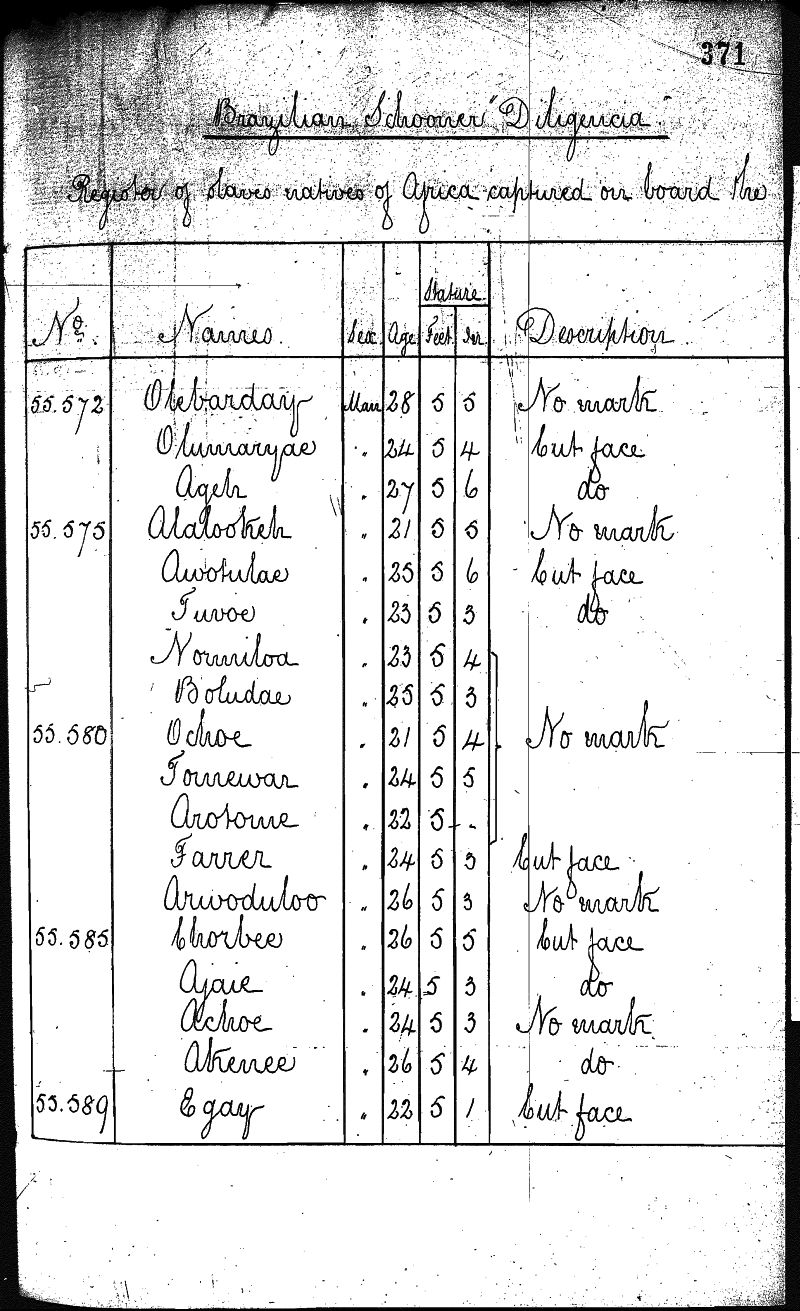 371
Brazilian Schooner "Diligencia"
Register of slaves natives of Africa captured on board the
Stature
No. Names. Sex Age Feet In Description
55.572 Olebarday Man 28 5 5 No mark
Olumaryae " 24 5 4 Cut face
Ageh " 27 5 6 do
55.575 Alalookeh " 21 5 5 No mark
Awotulae " 25 5 6 Cut face
Tuvoe " 23 5 3 do
Normiloa " 23 5 4
Boludae " 25 5 3
55.580 Ochoe " 21 5 4 No mark
Tomewar " 24 5 5
Arotome " 22 5 - "
Farrer " 24 5 3 Cut face
Arwoduloo " 26 5 3 No mark
55.585 Chorbee " 26 5 5 Cut face
Ajaie " 24 5 3 do
Achoe " 24 5 3 No mark
Akenee " 26 5 4 do
55.589 Egay " 22 5 1 Cut face